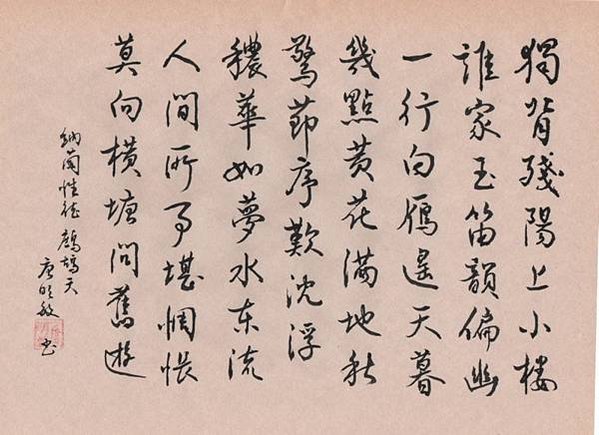 獨背殘陽上小樓
誰家玉笛韻偏幽
一行白雁遙天暮
幾點黃花滿地秋
驚節序歎沈浮
穠華如夢水東流
人間所事堪惆悵
莫向橫塘問舊遊
納蘭性德鷓鴣天
唐明敏書